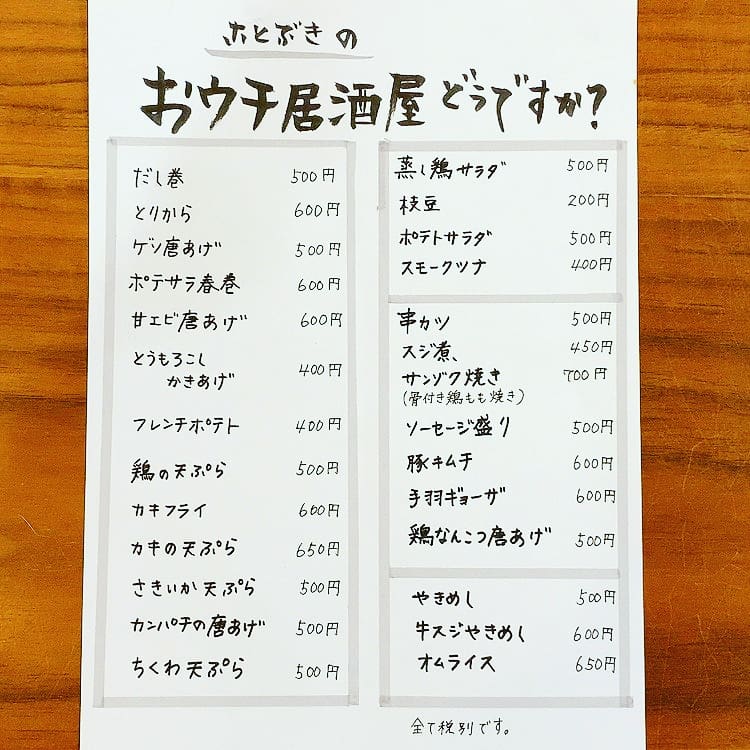 ことぶきの
おウチ居酒屋どうですか?
だし巻 500円
とりから 600円
ゲソ唐あげ 500円
ポテサラ春巻 600円
甘エビ唐あげ 600円
とうもろこし
かきあげ 400円
フレンチポテト 400円
鶏の天ぷら 500円
カキフライ 600円
カキの天ぷら 650円
さきいか天ぷら 500円
カンパチの唐あげ 500円
ちくわ天ぷら 500円
蒸し鶏サラダ 500円
枝豆 200円
ポテトサラダ 500円
スモークツナ 400円
串カツ 500円
スジ煮、 450円
サンゾク焼き 700円
(骨付き鶏もも焼き)
ソーセージ盛り 500円
豚キムチ 600円
手羽ギョーザ 600円
鶏なんこつ唐あげ 500円
やきめし 500円
牛スジやきめし 600円
オムライス 650円
全て税別です。